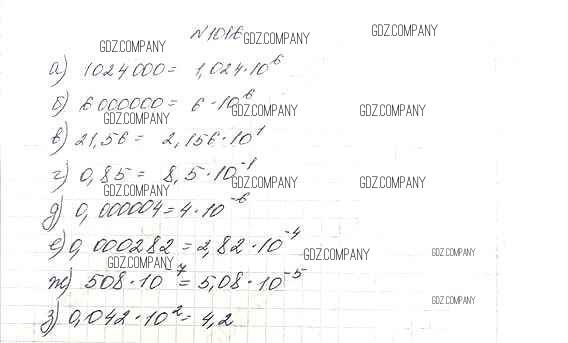 N 1016
GDZ.COMPANY GDZ.COMPANY GDZ.COMPANY
а) 1024000 = 1,024·10⁶
б) 6 000000 = 6·10⁶
GDZ.COMPANY GDZ.COMPANY GDZ.COMPANY
в) 21,56 = 2,156·10¹
г) 0,85 = 8,5·10⁻¹
GDZ.COMPANY GDZ.COMPANY GDZ.COMPANY
д) 0,000004 = 4·10⁻⁶
е) 0,000282 = 2,82·10⁻⁴
GDZ.COMPANY GDZ.COMPANY GDZ.COMPANY
ж) 508·10⁷ = 5,08·10⁻⁵
GDZ.COMPANY
з) 0,042·10² = 4,2